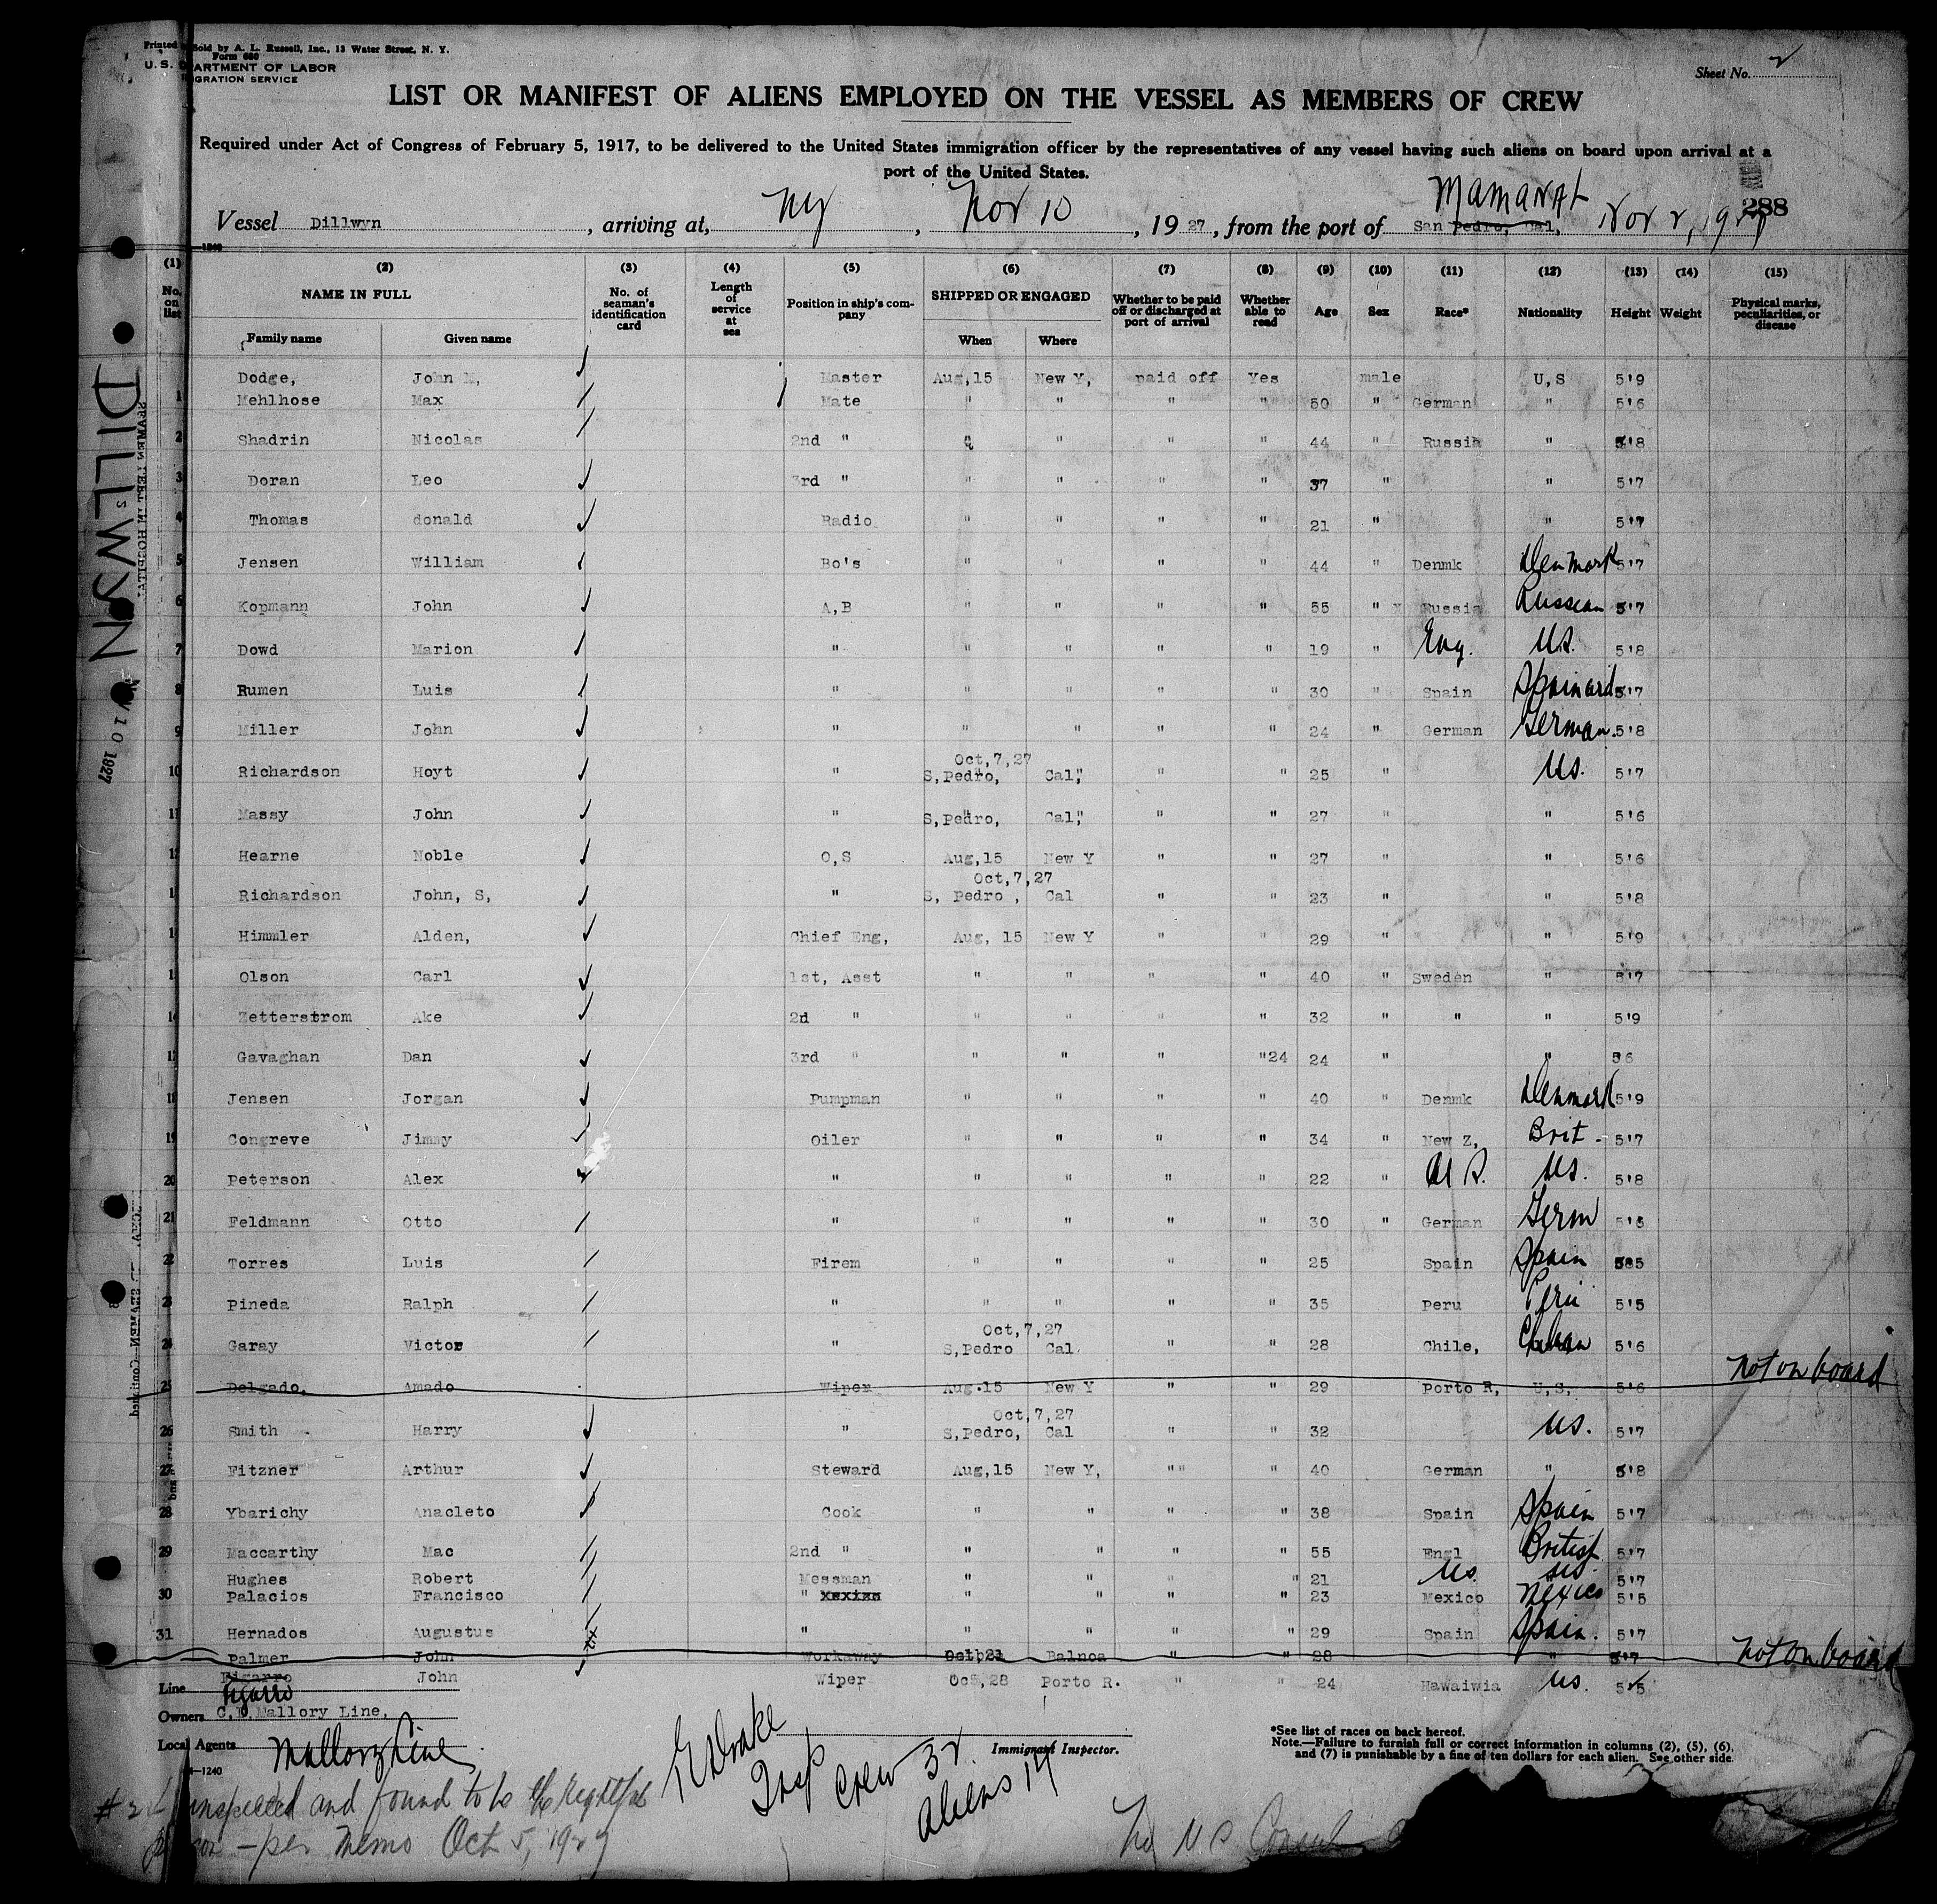 Printed Sold by A. L. Russell, Inc., 13 Water Street, N. Y.
Form 680
U. S. DEPARTMENT OF LABOR
IMMIGRATION SERVICE
Sheet No. 2
LIST OR MANIFEST OF ALIENS EMPLOYED ON THE VESSEL AS MEMBERS OF CREW
Required under Act of Congress of February 5, 1917, to be delivered to the United States immigration officer by the representatives of any vessel having such aliens on board upon arrival at a
port of the United States.
288
Vessel Dillwyn, arriving at, NY, Nov 10, 1927, from the port of San Pedro, Cal, Mamanal Nov 2, 1927
(1) (2) (3) (4) (5) (6) (7) (8) (9) (10) (11) (12) (13) (14) (15)
No. on list NAME IN FULL Family name Given name No. of seaman's identification card Length of service at sea Position in ship's company SHIPPED OR ENGAGED When Where Whether to be paid off or discharged at port of arrival Whether able to read Age Sex Race* Nationality Height Weight Physical marks, peculiarities, or disease
Dodge, John M, Master Aug,15 New Y, paid off Yes male U,S 5'9
1 Mehlhose Max Mate " " " " 50 " German " 5'6
2 Shadrin Nicolas 2nd " " " " " 44 " Russia " 5'8
3 Doran Leo 3rd " " " " " 37 " " 5'7
4 Thomas donald Radio " " " " 21 " " 5'7
5 Jensen William Bo's " " " " 44 " Denmk Denmark 5'7
6 Kopmann John A,B " " " " 55 " Russia Russian 5'7
7 Dowd Marion " " " " " 19 " Eng. U.S. 5'8
8 Rumen Luis " " " " " 30 " Spain Spainard 5'7
9 Miller John " " " " " 24 " German German. 5'8
10 Richardson Hoyt " Oct,7,27 S,Pedro, Cal, " " 25 " US. 5'7
11 Massy John " S,Pedro, Cal, " " 27 " " 5'6
12 Hearne Noble O,S Aug,15 New Y " " 27 " " 5'6
1 Richardson John, S, " Oct,7,27 S, Pedro, Cal " " 23 " " 5'8
1 Himmler Alden, Chief Eng, Aug, 15 New Y " " 29 " " 5'9
1 Olson Carl 1st, Asst " " " " 40 " Sweden " 5'7
1 Zetterstrom Ake 2d " " " " " 32 " " " 5'9
1 Gavaghan Dan 3rd " " " " "24 24 " " 5 6
18 Jensen Jorgan Pumpman " " " " 40 " Denmk Denmark 5'9
19 Congreve Jimmy Oiler " " " " 34 " New Z, Brit - 5'7
20 Peterson Alex " " " " " 22 " U S. US. 5'8
21 Feldmann Otto " " " " " 30 " German Germ 5'6
22 Torres Luis Firem " " " " 25 Spain Spain 5'5
23 Pineda Ralph " " " " " 35 Peru Peru 5'5
24 Garay Victor " Oct,7,27 S,Pedro Cal. " " 28 Chile, Chilean 5'6
25 Delgado, Amado Wiper Aug.15 New Y " " 29 Porto R, U,S, 5'6 not on board
26 Smith Harry " Oct,7,27 S,Pedro, Cal " " 32 US. 5'7
27 Fitzner Arthur Steward Aug,15 New Y, "" " 40 German " 5'8
28 Ybarichy Anacleto Cook " " " " 38 Spain Spain 5'7
29 Maccarthy Mac 2nd " " " " " 55 Engl British 5'7
Hughes Robert Messman " " " " 21 US US 5'7
30 Palacios Francisco " Mexixo " " " " 23 Mexico Mexico 5'5
31 Hernados Augustus " " " " " 29 Spain Spain. 5'7
Palmer John Workaway Oct,21 Balnoa " 28 " 5'7 not on board
Figarro Figarro John Wiper Oct,28 Porto R. " " 24 Hawaiwia US. 5'5
Line
Owners C.D.Mallory Line,
Local Agents Mallory Line
14—1240
Immigrant Inspector.
*See list of races on back hereof.
Note.—Failure to furnish full or correct information in columns (2), (5), (6),
and (7) is punishable by a fine of ten dollars for each alien. See other side.
G Drake
Insp
Crew 32.
aliens 14
#24 inspected and found to be the rightful
person - per memo Oct 5, 1927
The U S Consul
DILLWYN
NOV 10 1927